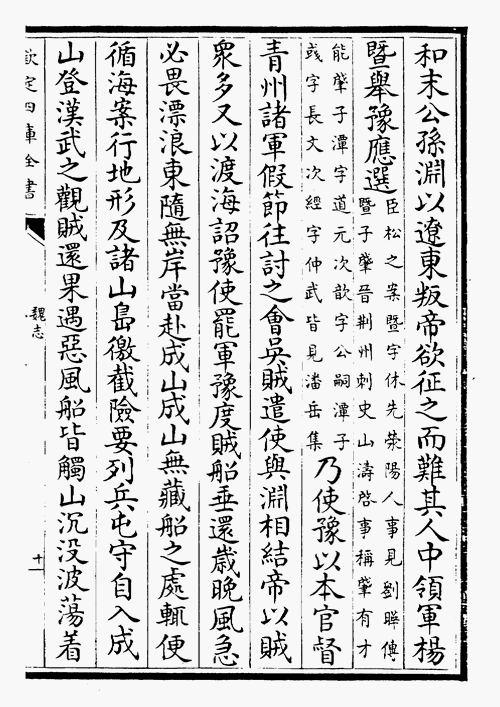 和末公孫淵以遼東叛帝欲征之而難其人中領軍楊
暨舉豫應選
臣松之案暨字休先滎陽人事見劉曄傳
暨子肇晉荆州刺史山濤啓事稱肇有才
能肇子潭字道元次歆字公嗣潭子
彧字長文次經字仲武皆見潘岳集
乃使豫以本官督
青州諸軍假節往討之會吳賊遣使與淵相結帝以賊
衆多又以渡海詔豫使罷軍豫度賊船垂還歲晚風急
必畏漂浪東隨無岸當赴成山成山無藏船之處輒便
循海案行地形及諸山島徼截險要列兵屯守自入成
山登漢武之觀賊還果遇惡風船皆觸山沉没波蕩着
欽定四庫全書
魏志
十一